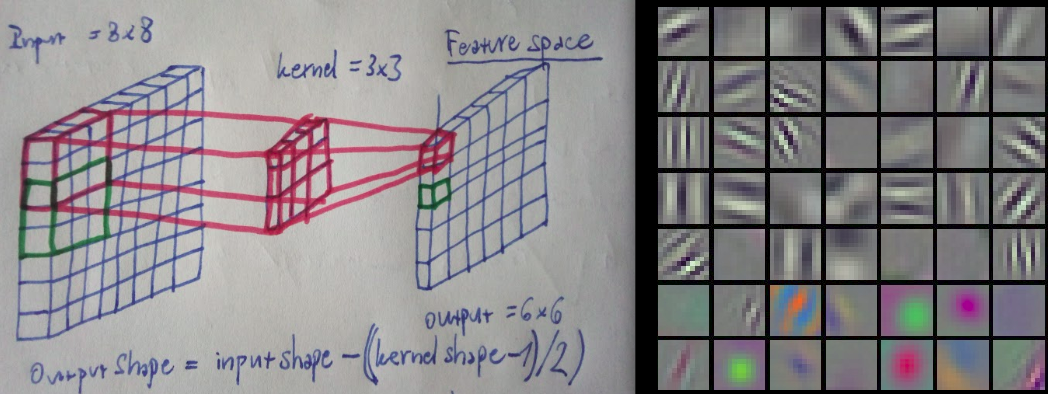 Input = 8x8
kernel = 3x3
Feature space
output = 6x6
Output Shape = input shape - ((kernel shape - 1)/2)